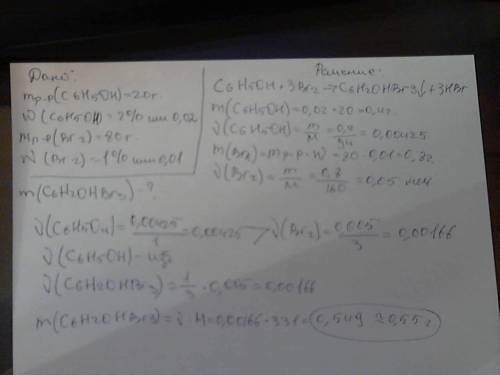 Дано:
mр-р(C6H5OH)=20г.
W(C6H5OH)=2% или 0,02
mр-р(Br2)=80г.
W(Br2)=1% или 0,01
m(C6H2OHBr3)-?
Решение:
C6H5OH+3Br2→C6H2OHBr3↓+3HBr
m(C6H5OH)=0,02·20=0,4г.
ν(C6H5OH)=m/M=0,4/94=0,00425
m(Br2)=mр-р·W=80·0,01=0,8г.
ν(Br2)=m/M=0,8/160=0,05 мол
ν(C6H5OH)=0,00425/1=0,00425 > ν(Br2)=0,005/3=0,00166
ν(C6H5OH)-изб
ν(C6H2OHBr3)=1/3·0,005=0,00166
m(C6H2OHBr3)=ν·M=0,00166·331=0,549≈0,55г